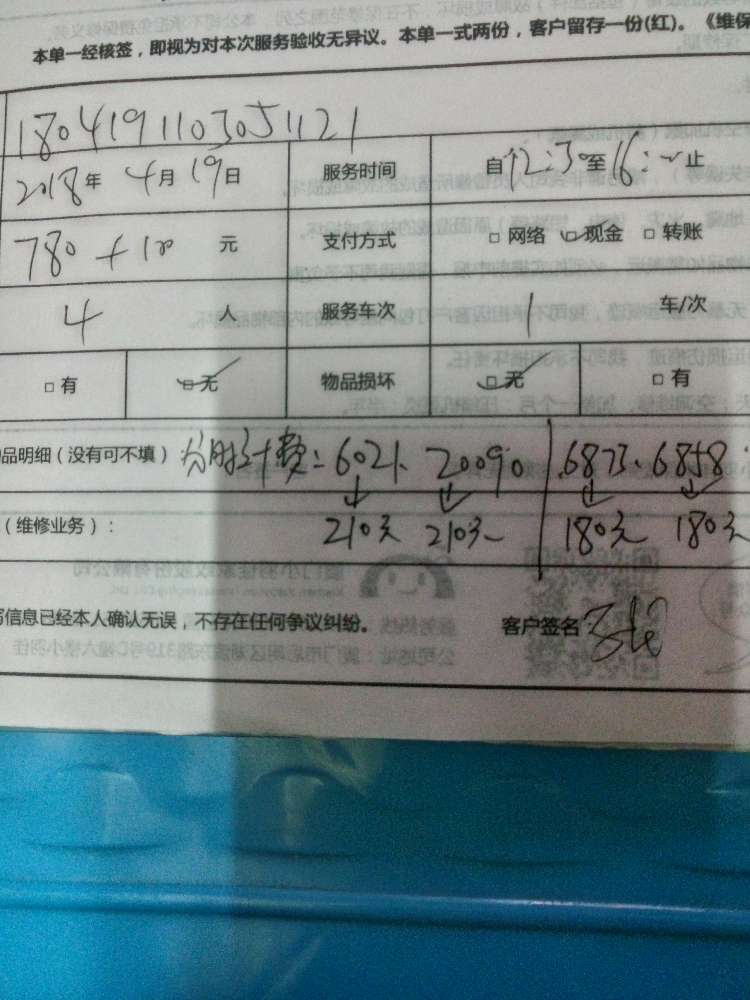 本单一经核签，即视为对本次服务验收无异议。本单一式两份，客户留存一份(红)。《维保
1804191103051121
2018年 4月19日 服务时间 自12:30至16:00止
780+100 元 支付方式 □ 网络 □ 现金 □ 转账
4 人 服务车次 1 车/次
□ 有 □ 无 物品损坏 □ 无 □ 有
品明细（没有可不填） 分时计费：6021、20090 6873、6858：
210元 210元 180元 180元
（维修业务）：
信息已经本人确认无误，不存在任何争议纠纷。 客户签名